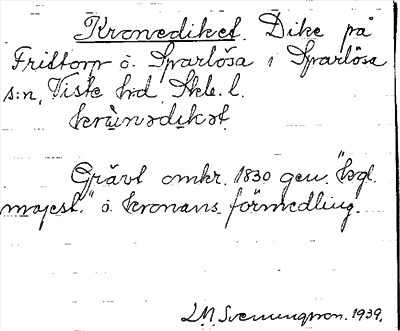 Kronediket. Dike på
Fristorp ö. Sparlösa i Sparlösa
s:n, Viste hd, Skb. l.
krùnədıkət
Grävt omkr. 1830 gen. "kgl.
majest." o. kronans förmedling.
L M Svenungsson. 1939.